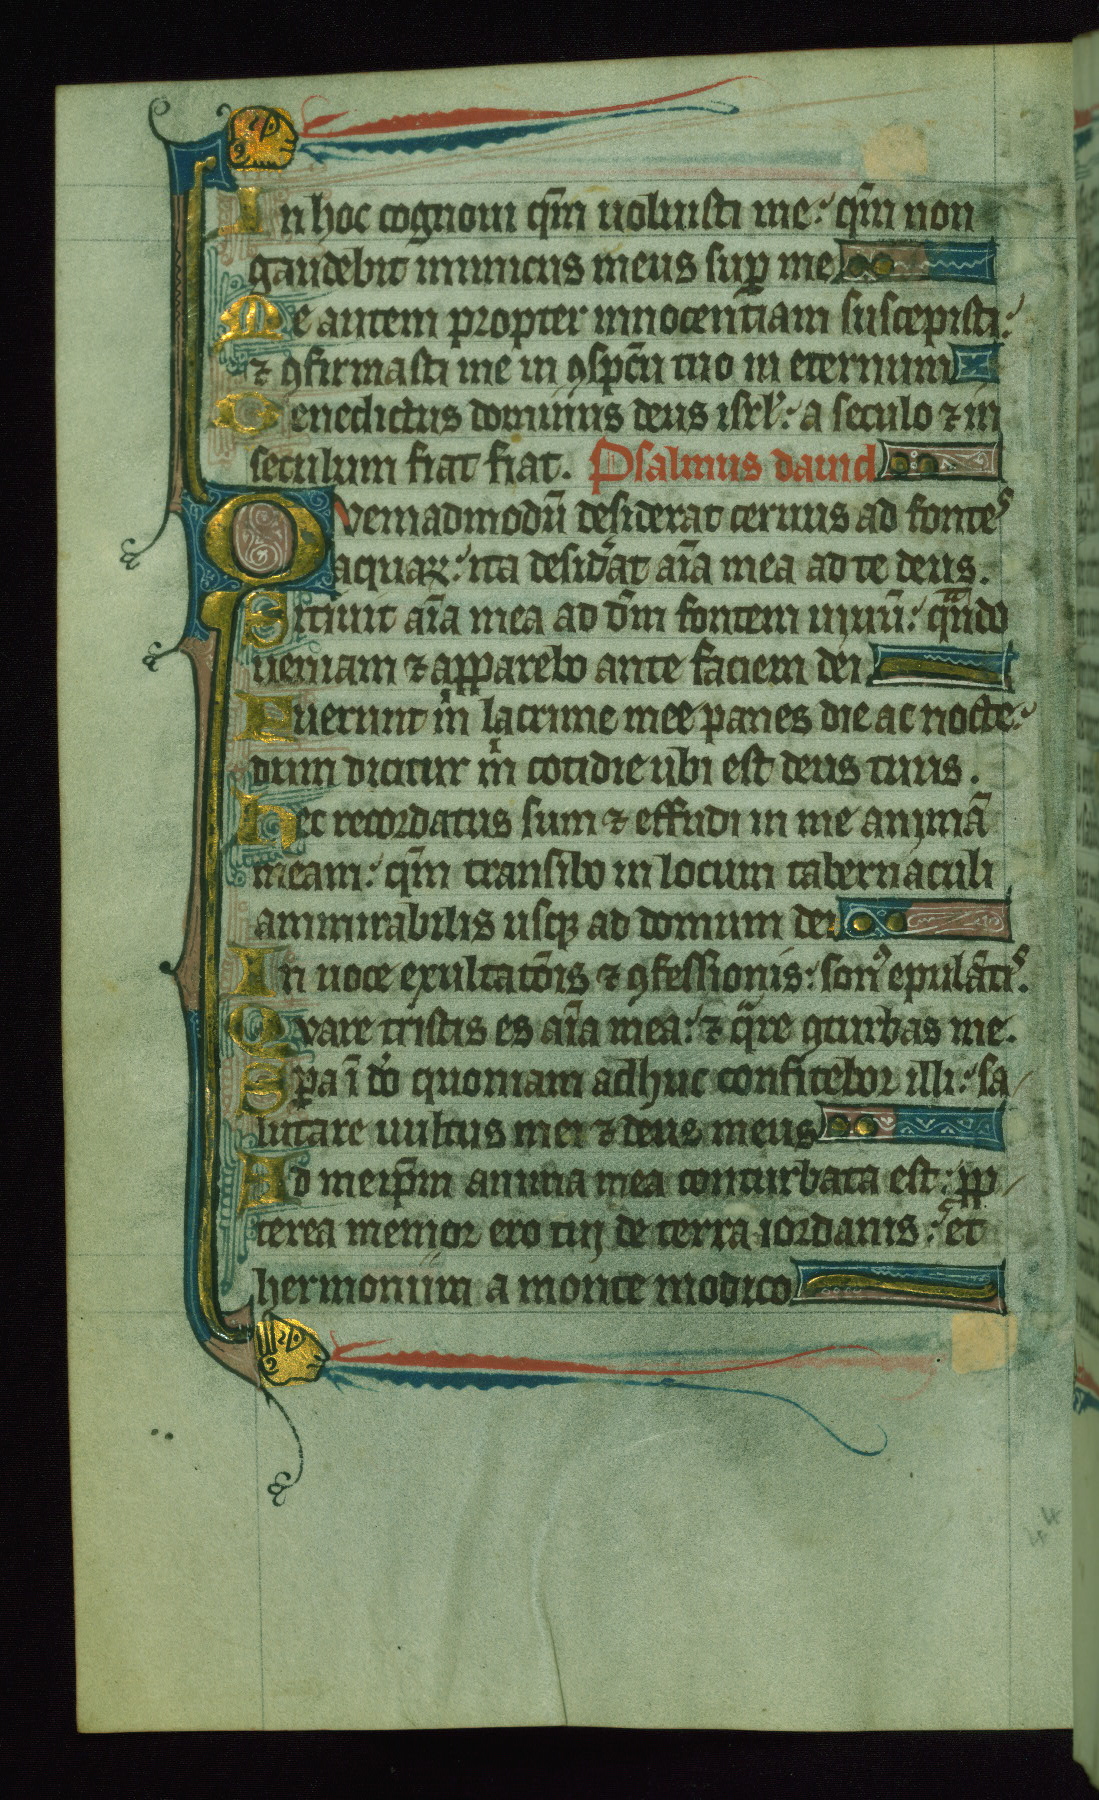 In hoc cognoui qm̄ uoluisti me: qm̄ non
gaudebit inimicus meus suꝑ me
Me autem propter innocentiam suscepisti:
⁊ ꝯfirmasti me in ꝯspc̄u tuo in eternum
Benedictus dominus deus isrl̄: a seculo ⁊ in
seculum fiat fiat. Psalmus dauid
Quemadmodū desiderat ceruus ad fontes
aquaꝝ: ita desid̓at aīa mea ad te deus.
Sitiuit aīa mea ad dm̄ fontem uiuū: qn̄do
ueniam ⁊ apparebo ante faciem dei
Fuerunt m̓ lacrime mee panes die ac nocte:
dum dicitur m̓ cotidie ubi est deus tuus.
Hec recordatus sum ⁊ effudi in me animā
meam: qm̄ transibo in locum tabernaculi
ammirabilis usqꝫ ad domum dei
In uoce exultatōis ⁊ ꝯfessionis: son᷒ epulātis.
Quare tristis es aīa mea: ⁊ qͣre ꝯturbas me.
Spa ī do quoniam adhuc confitebor illi: sa
lutare uultus mei ⁊ deus meus
Ad meip̄m anima mea conturbata est: ꝓp
terea memor ero tui de terra iordanis: et
hermonium a monte modico
44